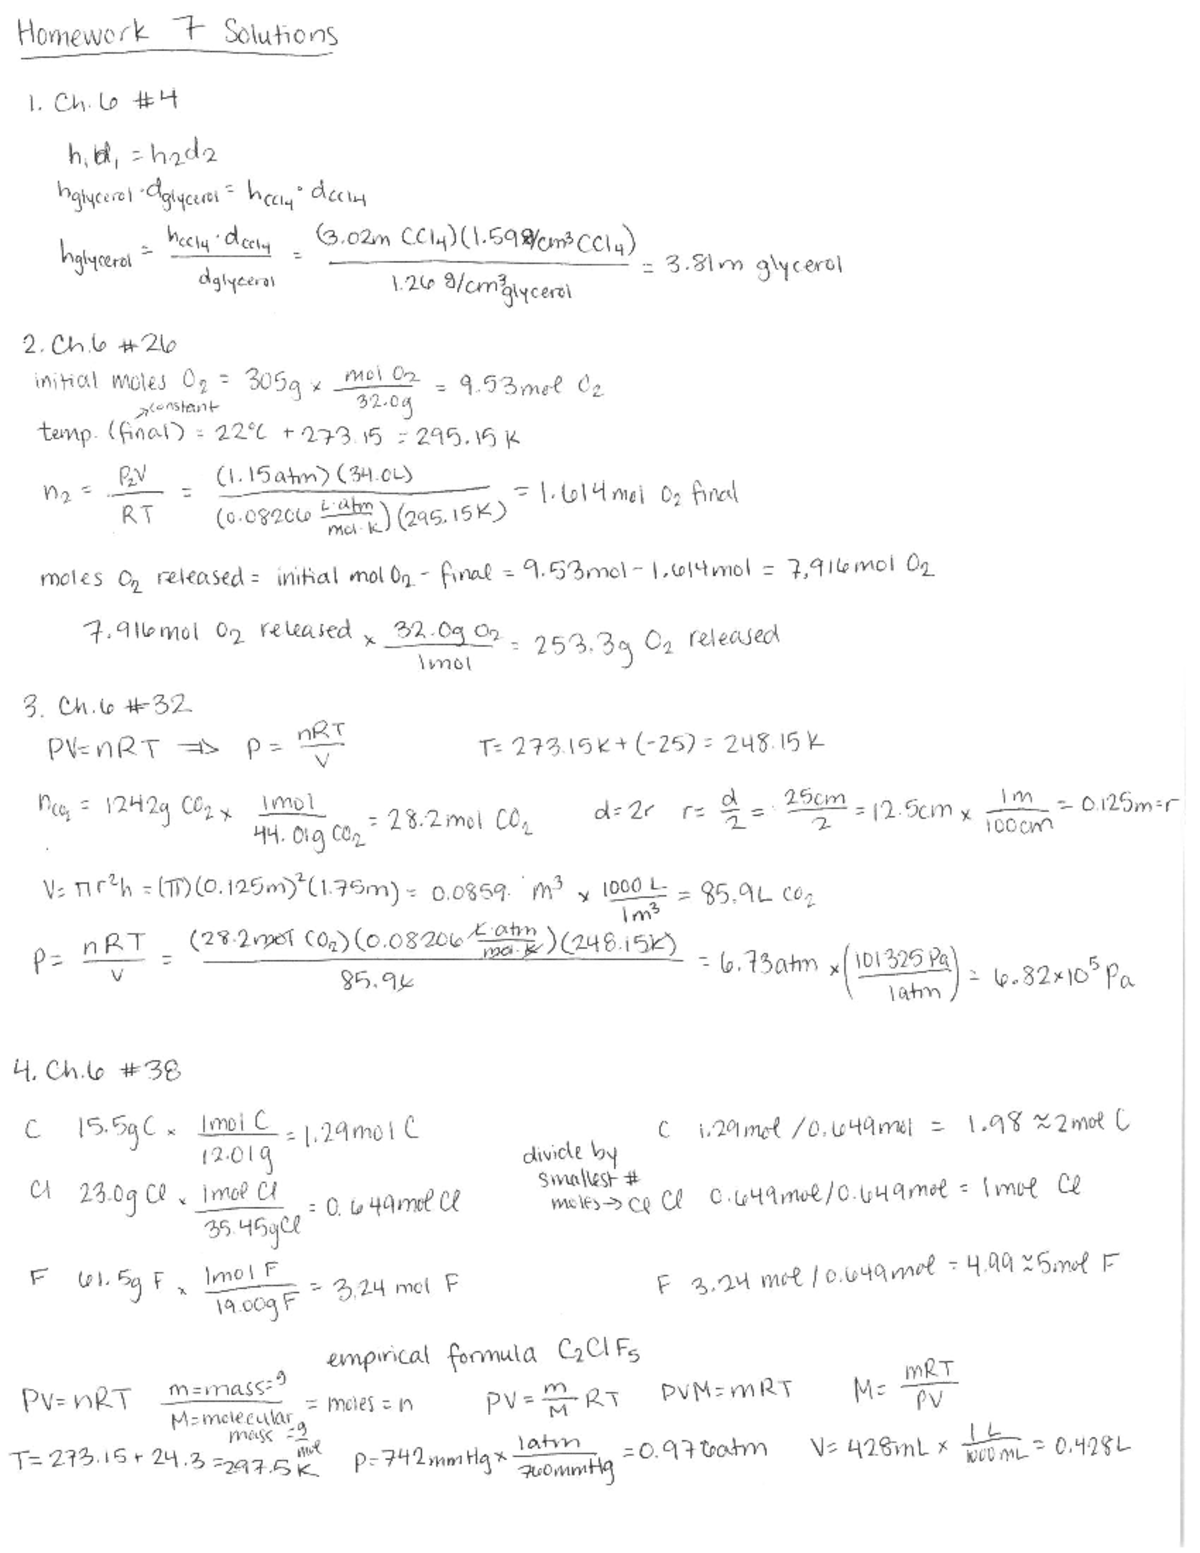 Homework 7 Solutions
1. Ch. 6 #4
h₁d₁ = h₂d₂
hglycerol · dglycerol = hCCl₄ · dCCl₄
hglycerol = hCCl₄ · dCCl₄ / dglycerol = (3.02m CCl₄)(1.59g/cm³ CCl₄) / 1.26 g/cm³ glycerol = 3.81m glycerol
2. Ch.6 #26
initial moles O₂ = 305g × mol O₂ / 32.0g = 9.53mol O₂
→constant
temp. (final) = 22°C + 273.15 = 295.15 K
n₂ = P₂V / RT = (1.15atm)(34.0L) / (0.08206 L·atm / mol·K)(295.15K) = 1.614mol O₂ final
moles O₂ released = initial mol O₂ - final = 9.53mol - 1.614mol = 7.916mol O₂
7.916mol O₂ released × 32.0g O₂ / 1mol = 253.3g O₂ released
3. Ch.6 #32
PV=nRT ⇒ P = nRT / V T= 273.15K + (-25) = 248.15K
nCO₂ = 1242g CO₂ × 1mol / 44.01g CO₂ = 28.2mol CO₂ d=2r r= d/2 = 25cm / 2 = 12.5cm × 1m / 100cm = 0.125m=r
V= πr²h = (π)(0.125m)²(1.75m) = 0.0859 m³ × 1000 L / 1m³ = 85.9L CO₂
P= nRT / V = (28.2mol CO₂)(0.08206 L·atm / mol·K)(248.15K) / 85.9L = 6.73atm × (101325 Pa / 1atm) = 6.82×10⁵ Pa
4. Ch.6 #38
C 15.5g C × 1mol C / 12.01g = 1.29mol C C 1.29mol / 0.649mol = 1.98 ≈ 2mol C
divide by
smallest #
moles → Cl
Cl 23.0g Cl × 1mol Cl / 35.45g Cl = 0.649mol Cl Cl 0.649mol / 0.649mol = 1mol Cl
F 61.5g F × 1mol F / 19.00g F = 3.24 mol F F 3.24 mol / 0.649mol = 4.99 ≈ 5mol F
empirical formula C₂ClF₅
PV=nRT m=mass=g / M=molecular mass =g/mol = moles = n PV = m/M RT PVM=mRT M= mRT / PV
T= 273.15 + 24.3 = 297.5K P=742mmHg × 1atm / 760mmHg = 0.976atm V= 428mL × 1L / 1000mL = 0.428L